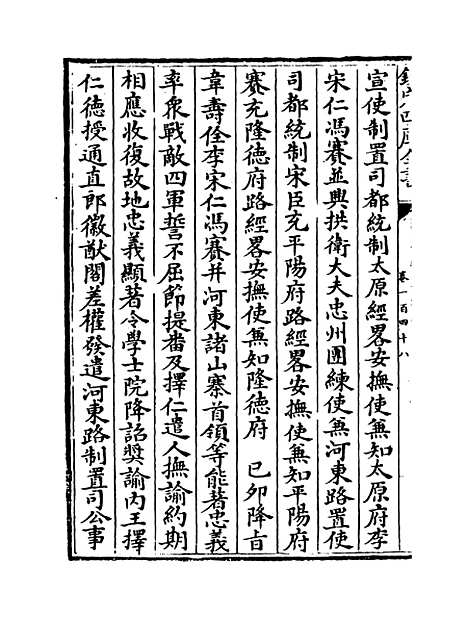 欽定四庫全書
卷一百四十八
宣使制置司都統制太原經畧安撫使兼知太原府李
宋仁馮賽並興拱衛大夫忠州團練使兼河東路置使
司都統制宋臣充平陽府路經畧安撫使兼知平陽府
賽充隆德府路經畧安撫使兼知隆德府 已卯降旨
韋壽佺李宋仁馮賽并河東諸山寨首領等能著忠義
率衆戰敵四軍誓不屈節提畨及擇仁遣人撫諭約期
相應收復故地忠義顯著令學士院降詔奬諭内王擇
仁徳授通直郎徽猷閣差權發遣河東路制置司公事